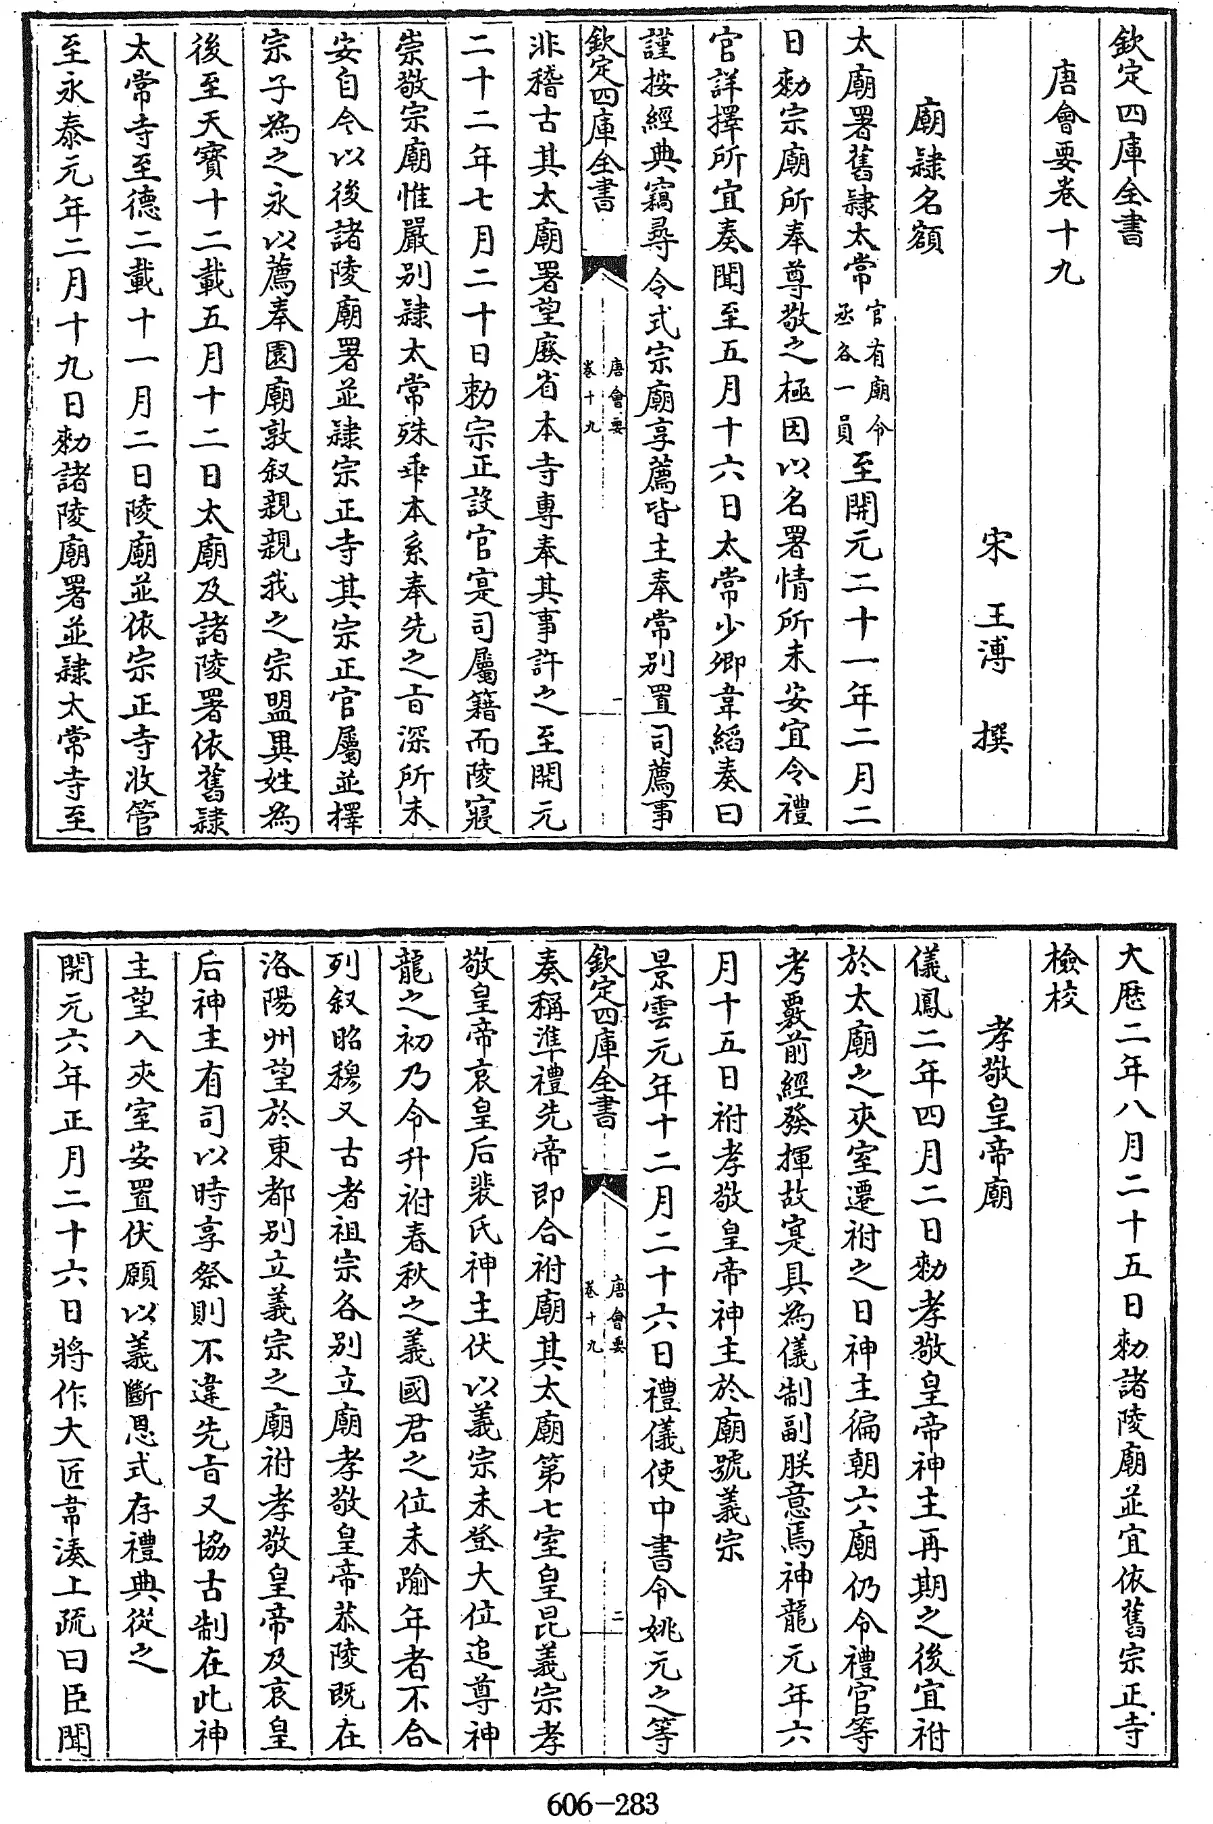 欽定四庫全書
唐會要卷十九
宋 王溥 撰
廟隸名額
太廟署舊隸太常官有廟令丞各一員至開元二十一年二月二
日勑宗廟所奉尊敬之極因以名署情所未安宜令禮
官詳擇所宜奏聞至五月十六日太常少卿韋縚奏曰
謹按經典竊尋令式宗廟享薦皆主奉常別置司薦事
欽定四庫全書
唐會要
卷十九
一
非稽古其太廟署望廢省本寺專奉其事許之至開元
二十二年七月二十日勑宗正設官寔司屬籍而陵寢
崇敬宗廟惟嚴別隸太常殊乖本系奉先之旨深所未
安自今以後諸陵廟署並隸宗正寺其宗正官屬並擇
宗子為之永以薦奉園廟敦叙親親我之宗盟異姓為
後至天寶十二載五月十二日太廟及諸陵署依舊隸
太常寺至德二載十一月二日陵廟並依宗正寺收管
至永泰元年二月十九日勑諸陵廟署並隸太常寺至
大厯二年八月二十五日勑諸陵廟並宜依舊宗正寺
檢校
孝敬皇帝廟
儀鳳二年四月二日勑孝敬皇帝神主再期之後宜祔
於太廟之夾室遷祔之日神主徧朝六廟仍令禮官等
考覈前經發揮故寔具為儀制副朕意焉神龍元年六
月十五日祔孝敬皇帝神主於廟號義宗
景雲元年十二月二十六日禮儀使中書令姚元之等
欽定四庫全書
唐會要
卷十九
二
奏稱準禮先帝即合祔廟其太廟第七室皇昆義宗孝
敬皇帝哀皇后裴氏神主伏以義宗未登大位追尊神
龍之初乃令升祔春秋之義國君之位未踰年者不合
列叙昭穆又古者祖宗各別立廟孝敬皇帝恭陵既在
洛陽州望於東都別立義宗之廟祔孝敬皇帝及哀皇
后神主有司以時享祭則不違先旨又協古制在此神
主望入夾室安置伏願以義斷恩式存禮典從之
開元六年正月二十六日將作大匠韋湊上疏曰臣聞
606-283